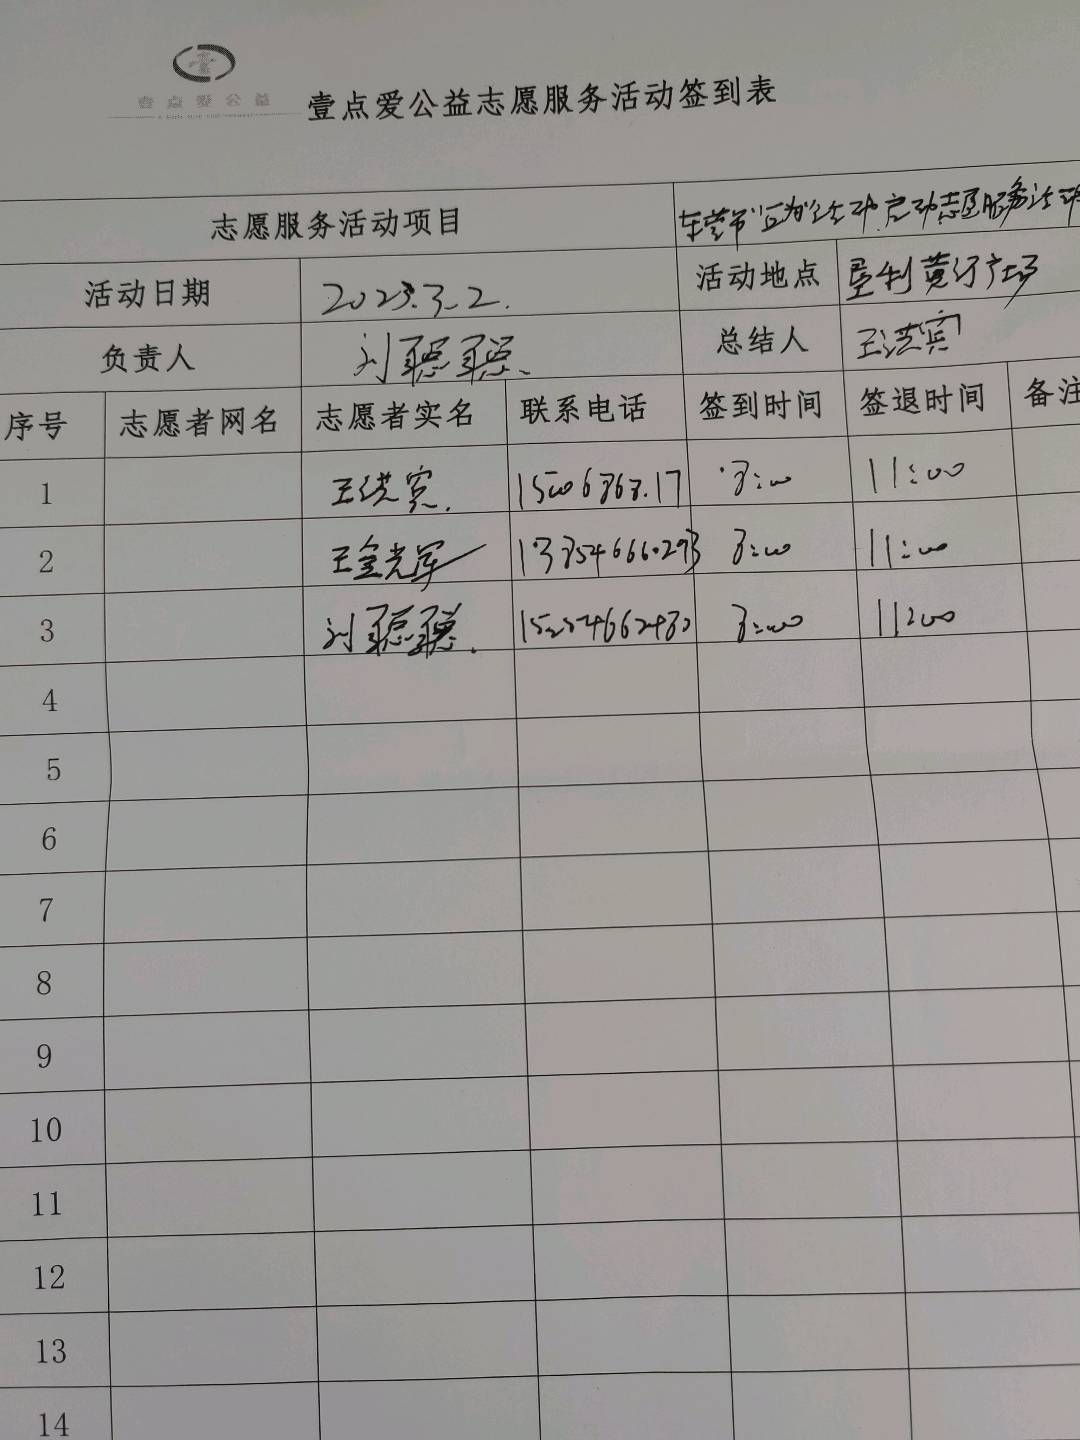 壹点爱公益
壹点爱公益志愿服务活动签到表
志愿服务活动项目 东营市"五为"活动启动志愿服务活动
活动日期 2023.3.2. 活动地点 垦利黄河广场
负责人 刘聪聪. 总结人 王洪宾
序号 志愿者网名 志愿者实名 联系电话 签到时间 签退时间 备注
1 王洪宾. 8:00 11:00
2 王金光军 13354666293 8:00 11:00
3 刘聪聪. 8:00 11:00
4
5
6
7
8
9
10
11
12
13
14